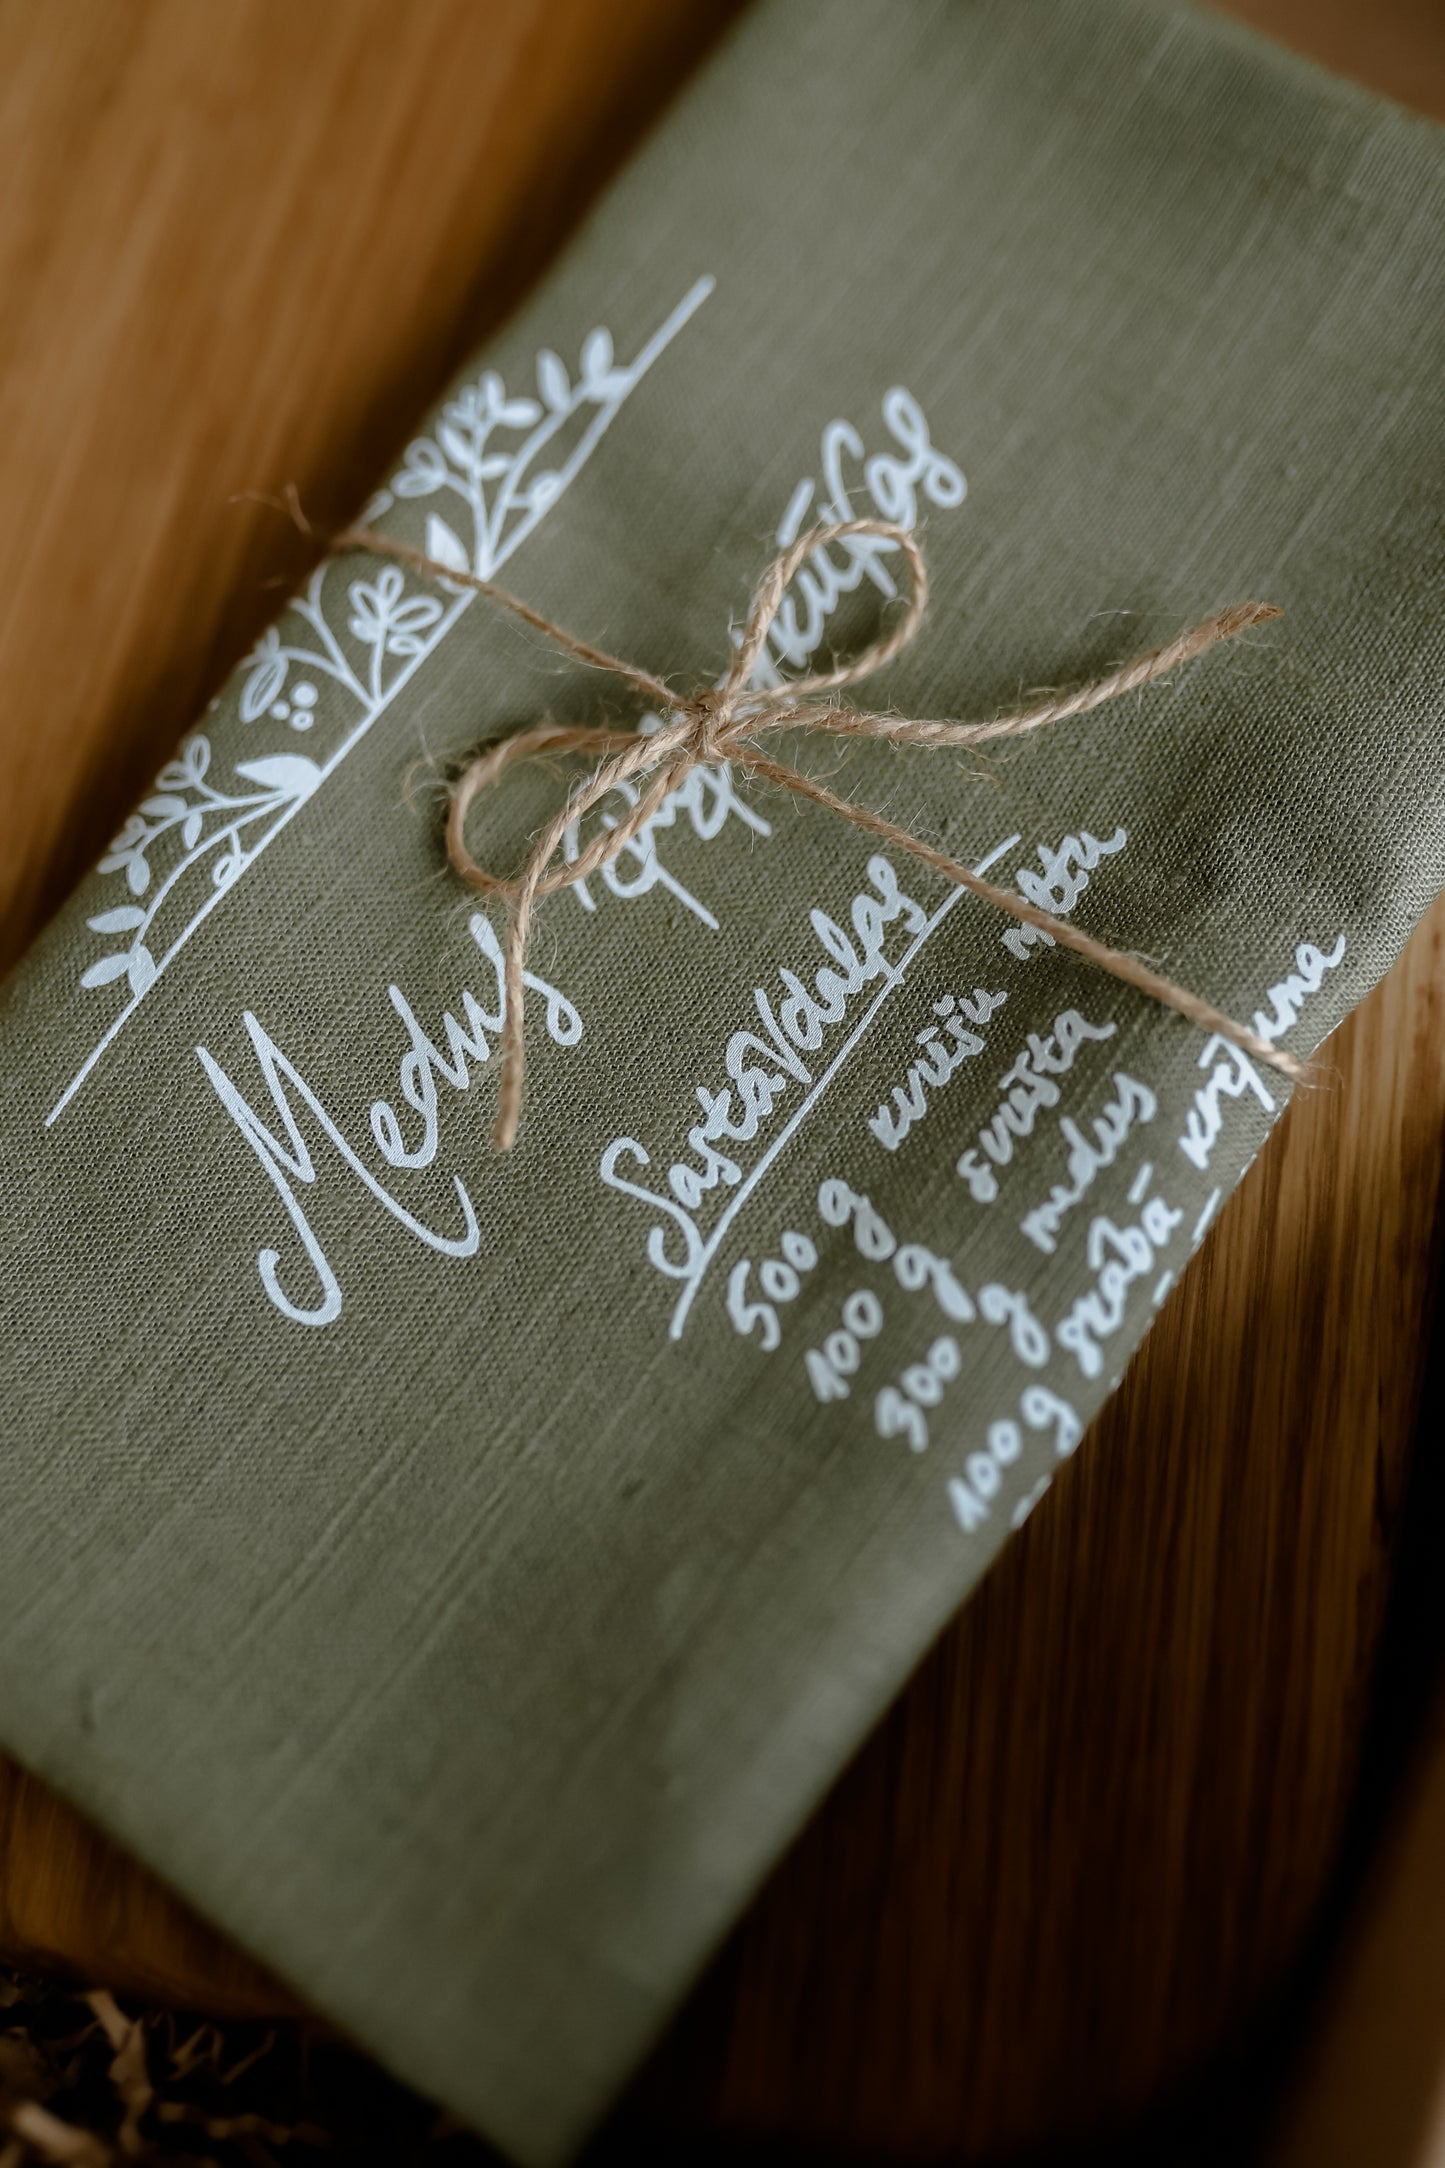 Medus
Sastāvdaļas
500 g kviešu miltu
100 g sviesta
300 g medus
100 g skābā krējuma